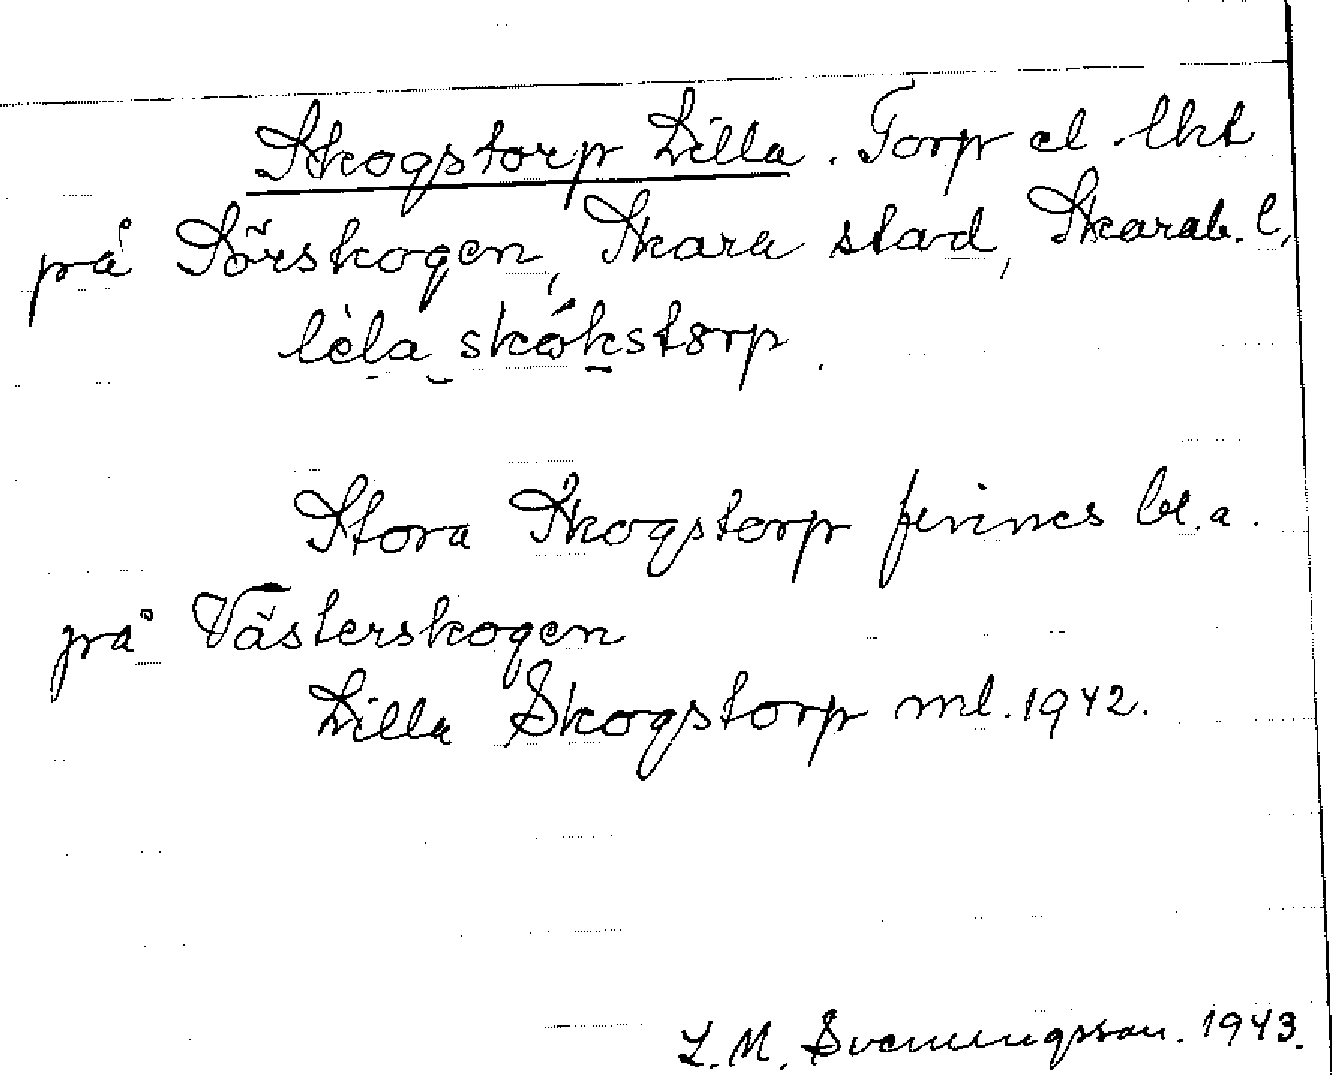 Skogstorp Lilla. Torp el. lht
på Sörskogen, Skara stad, Skarab. l,
lèla skókstorp.
Stora Skogstorp finnes bl.a.
på Västerskogen
Lilla Skogstorp ml. 1942.
L. M. Svenungsson. 1943.